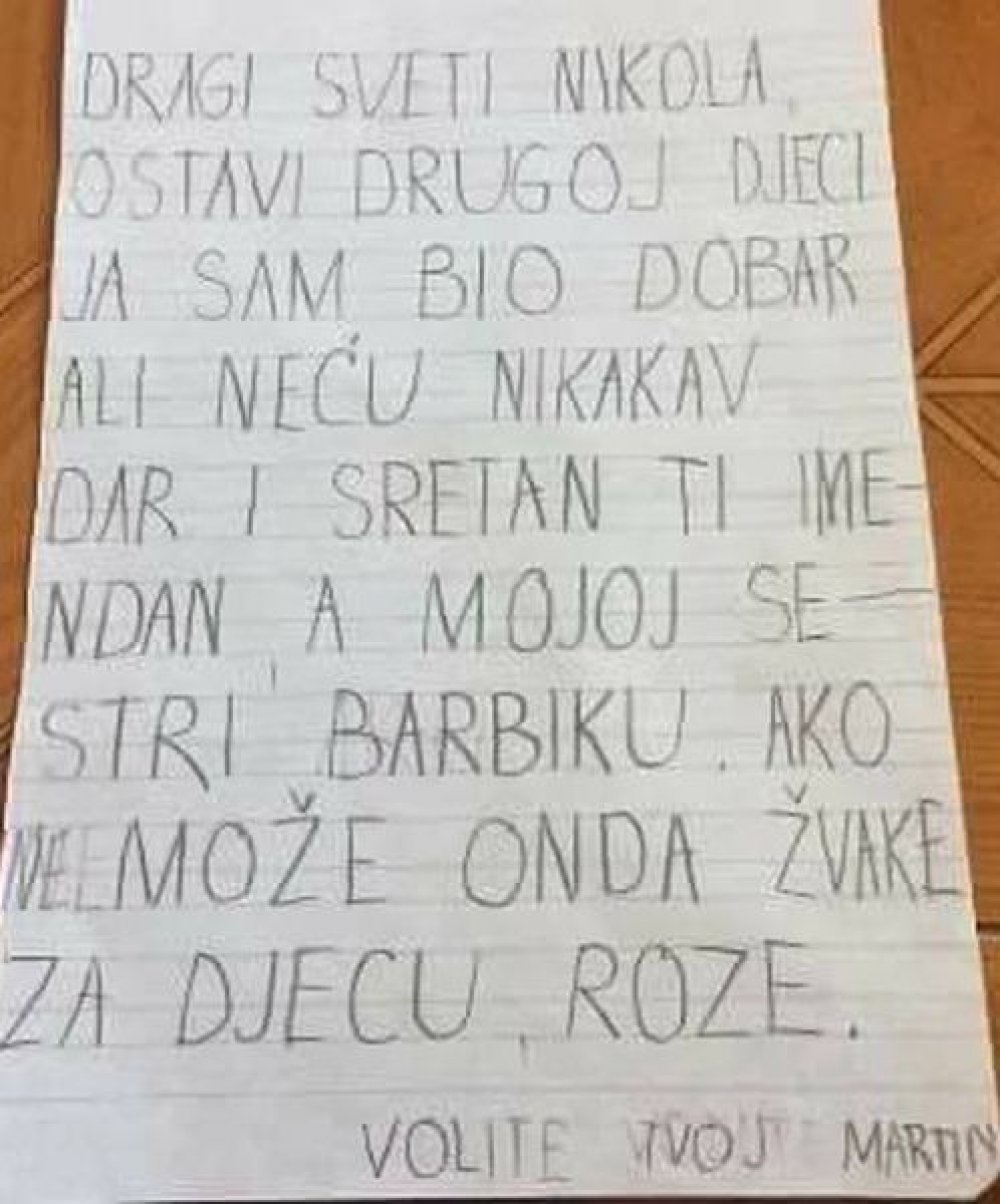 DRAGI SVETI NIKOLA,
OSTAVI DRUGOJ DJECI
JA SAM BIO DOBAR
ALI NEĆU NIKAKAV
DAR I SRETAN TI IME-
NDAN, A MOJOJ SE-
STRI BARBIKU. AKO
NE MOŽE ONDA ŽVAKE
ZA DJECU, ROZE.
VOLITE TVOJ MARTIN